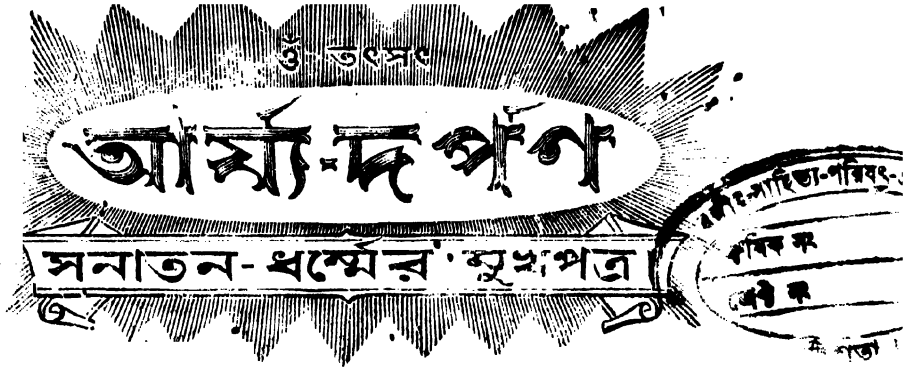 ওঁ তৎসৎ
আর্য্য-দর্পণ
সনাতন-ধর্ম্মের মুখপত্র
সাহিত্য-পরিষৎ
নং
নং